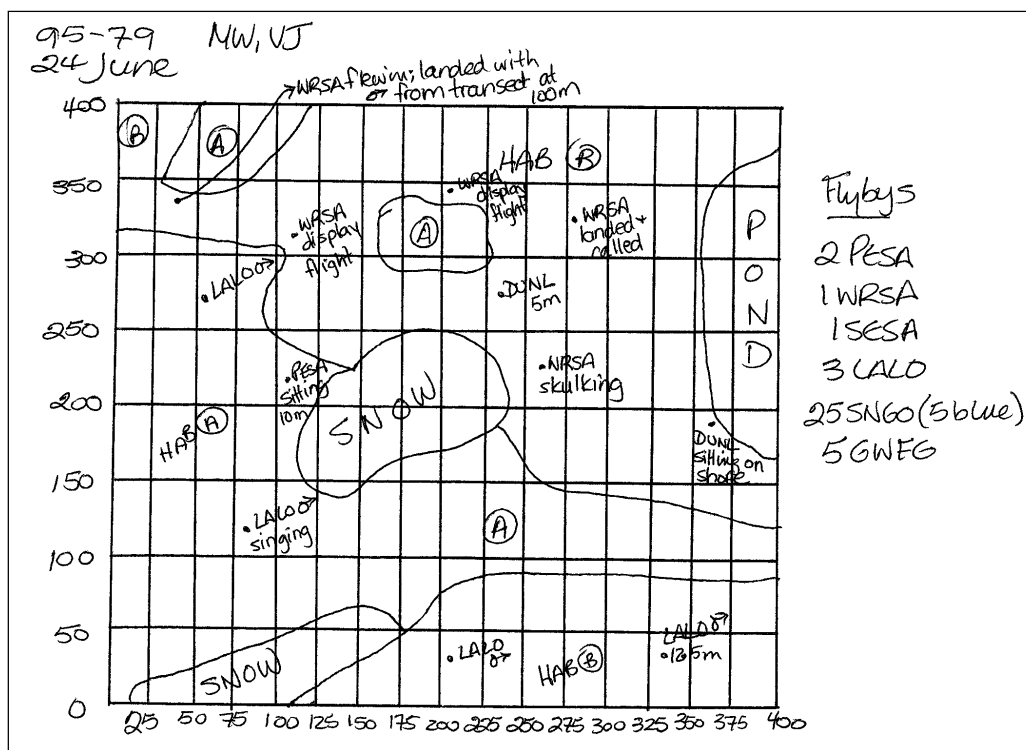 95-79 MW, VJ
24 June
WRSA flew in; landed with
♂ from transect at
100m
400
350
300
250
200
150
100
50
0
B
A
HAB B
WRSA
display
flight
WRSA
display
flight
A
WRSA
landed +
called
POND
LALO♂
DUNL
5m
PESA
sitting
10m
SNOW
WRSA
skulking
HAB A
DUNL
sitting on
shore
LALO♂
singing
A
LALO♂
12.5m
LALO
♂
HAB B
SNOW
25 50 75 100 125 150 175 200 225 250 275 300 325 350 375 400
Flybys
2 PESA
1 WRSA
1 SESA
3 LALO
25 SNGO (5 blue)
5 GWFG